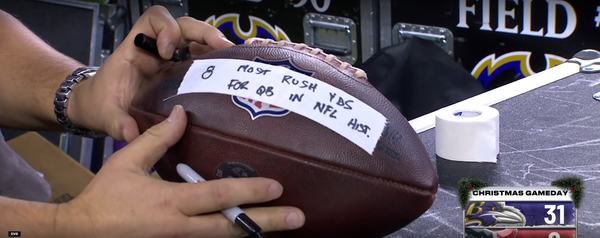 FIELD
8 MOST RUSH YDS
FOR QB IN NFL HIST.
CHRISTMAS GAMEDAY
31